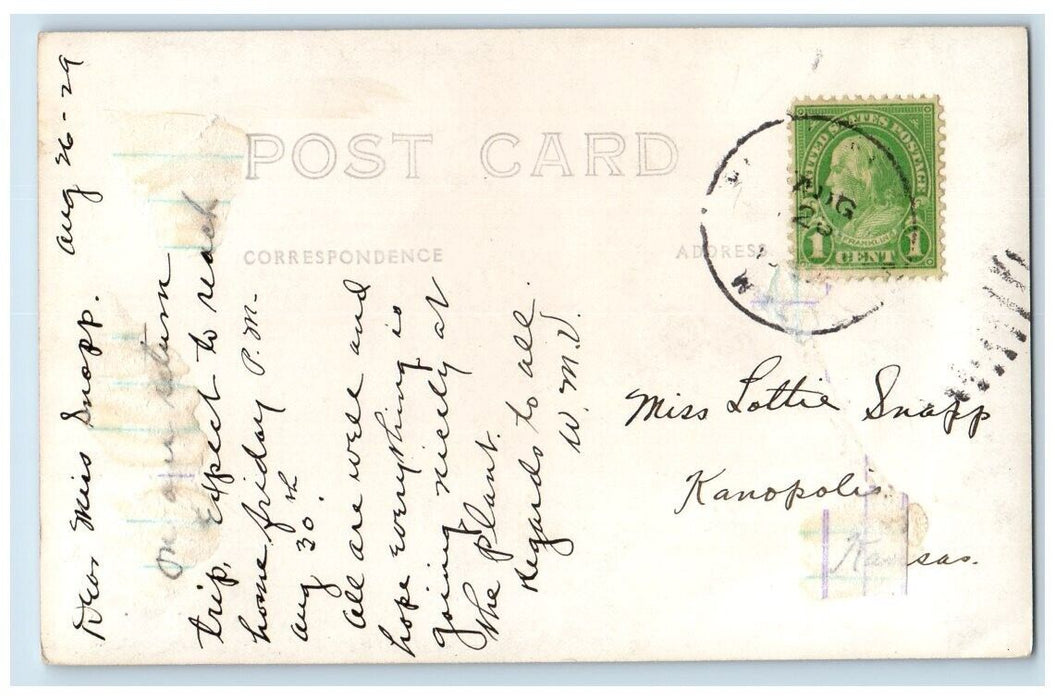 POST CARD
CORRESPONDENCE
ADDRESS
UNITED STATES POSTAGE
FRANKLIN
1 CENT 1
AUG
Aug 26-29
Dear Miss Snapp.
On our return
trip. Expect to reach
home friday P.M.
Aug 30th.
All are well and
hope everything is
going nicely at
the plant.
Regards to all.
W.M.V.
Miss Lottie Snapp
Kanopolis
Kansas.